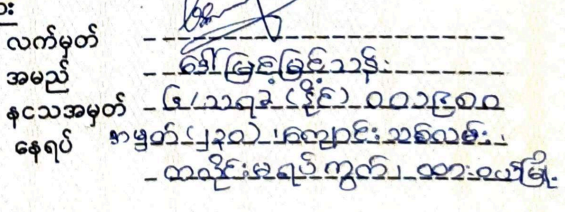 း
လက်မှတ်
အမည် ဒေါ်မြင့်မြင့်သန်း
နငသအမှတ် ၆/သရခ (နိုင်) ၀၀၁၉၈၀
နေရပ် အမှတ် (၂၃၀) ၊ ကျောင်းသစ်လမ်း၊
တလိုင်းစုရပ်ကွက်၊ ထားဝယ်မြို့